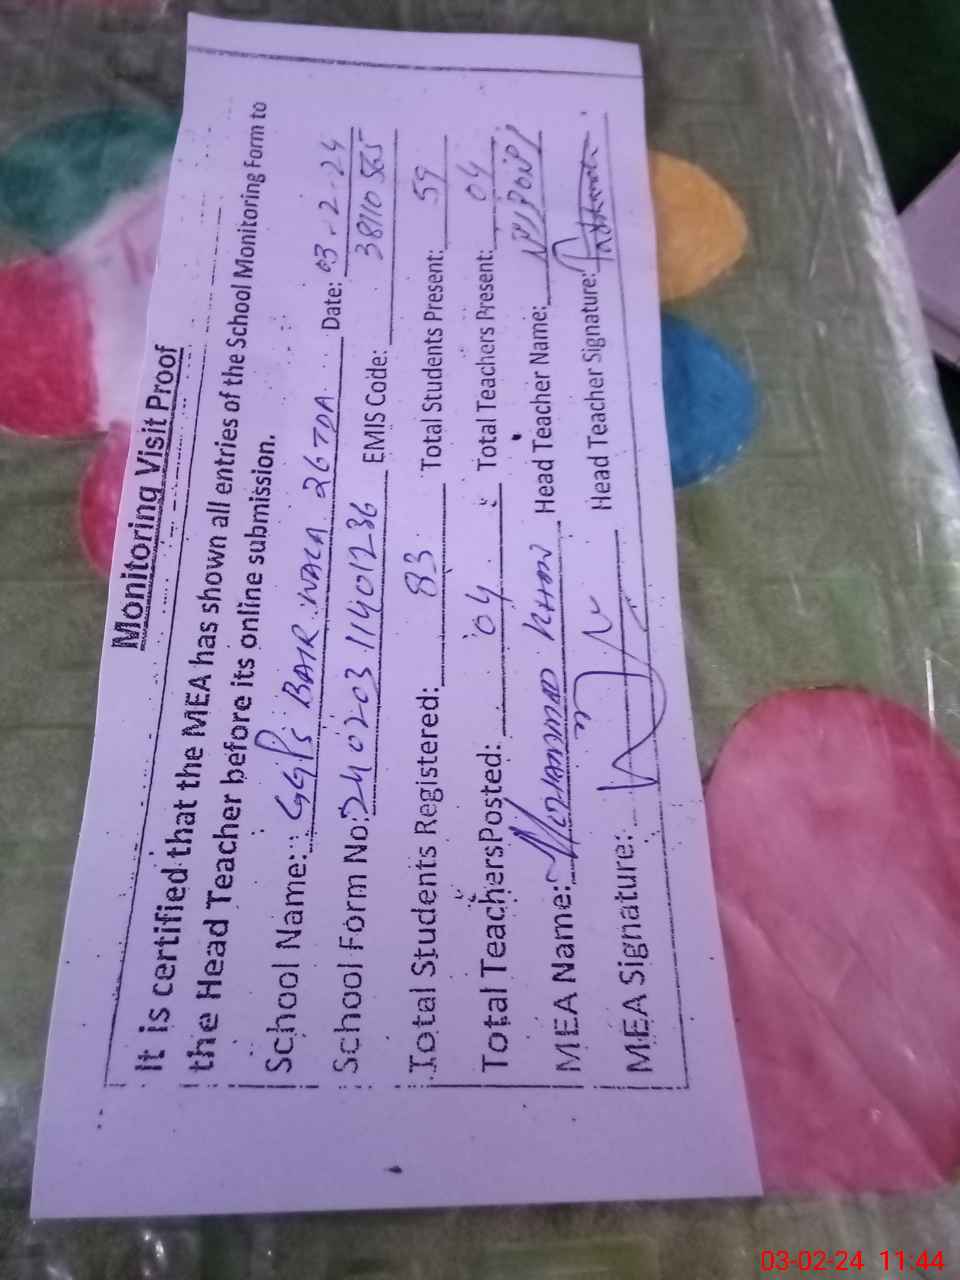 Monitoring Visit Proof
It is certified that the MEA has shown all entries of the School Monitoring Form to
the Head Teacher before its online submission.
School Name: GGPS BAIR WALA 26 TDA Date: 03-2-24
School Form No: 24020311401236 EMIS Code: 38110565
Total Students Registered: 83 Total Students Present: 59
Total Teachers Posted: 04 Total Teachers Present: 04
MEA Name: MOHAMMAD KHAN Head Teacher Name:
MEA Signature: Head Teacher Signature:
03-02-24 11:44